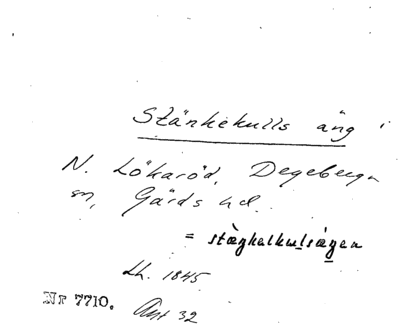 Stänkekulls äng
N. Lökaröd, Degeberga
sn, Gärds hd.
= stæ̀ŋkəlkulsæŋən
Lh. 1845
Nr 7710. Ant 32